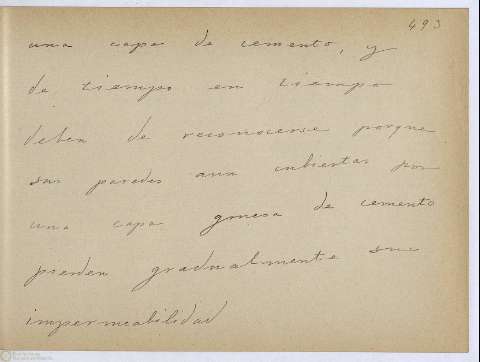 493
una capa de cemento, y
de tiempo en tiempo
deben de reconocerse porque
sus paredes aun cubiertas por
una capa gruesa de cemento
pierden gradualmente su
impermeabilidad